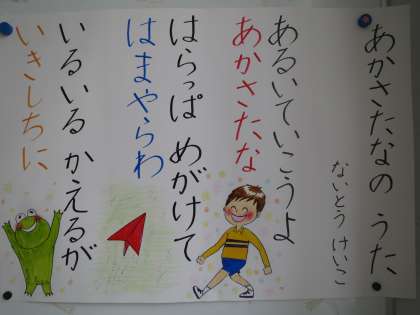 あかさたなの うた
ないとう けいこ
あるいていこうよ
あかさたな
はらっぱ めがけて
はまやらわ
いるいる かえるが
いきしちに